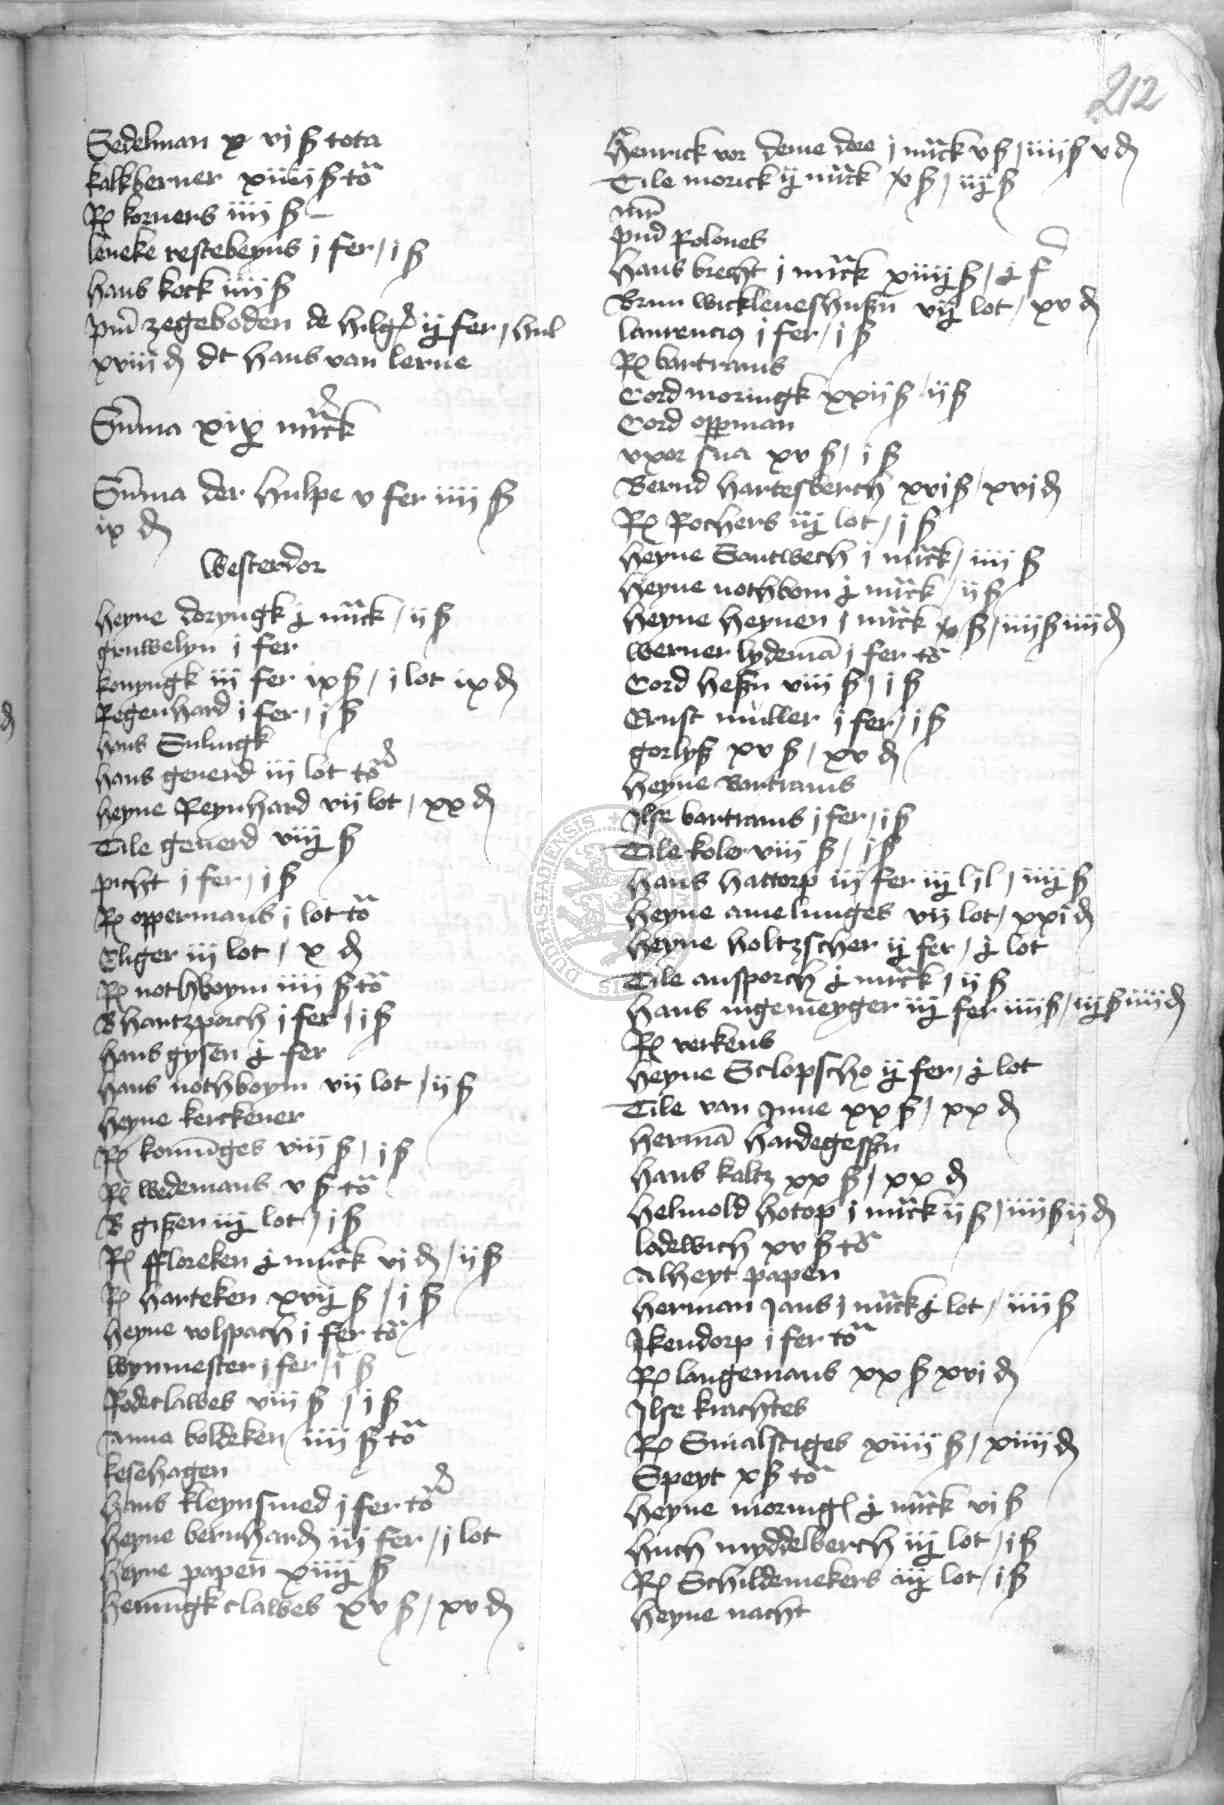 212
Sedelman x vi ß tota
kalkberner xiiii ß to
Rel korners iiii ß
leneke restebeyns i fer / i ß
hans kock iiii ß
zegeboden de ij fer / hul
xviii d dt hans van lerne
Summa xix mrck
Summa der hulpe v fer iiii ß
ix d
Westerdor
heyne doryngk mrck / ii ß
gruwelyn i fer
konyngk iii fer ix ß / i lot ix d
Regenhard i fer / i ß
hans Sulingk
hans generd iii lot to
heyne Reynhard vii lot / xx d
Tile generd viij ß
picht i fer / i ß
R oppermans i lot to
Eliger iii lot / x d
R nothboym iiii ß to
B hartzporch i fer / i ß
hans gysen fer
hans nothboym vii lot / ii ß
heyne kerckener
R konninges viii ß / i ß
R wedemans v ß to
B gißen iij lot / i ß
R ffloreken mrck vi d / ii ß
R harteken xvij ß / i ß
heyne volspach i fer to
wynmester i fer / i ß
Rodeclawes viii ß / i ß
Anna boldeken iiii ß to
kesehagen
hans kleynsmed i fer to
heyne bernhard iii fer / i lot
heyne papen xiiij ß
hennīgk clawes xv ß / xv d
Henrick vor deme dore i mrck v ß / iiii ß v d
Tile morick ij mrck x ß / iij ß
Rolones
hans brecht i mrck xiiij ß /
Brun wickleueshußn vij lot / xv d
laurencius i fer / i ß
R bartrams
Cord moringk xxii ß / ii ß
Cord opperman
vxor sua xv ß / i ß
Bernd hartesberch xvi ß / xvi d
R Rochers iij lot / i ß
heyne Santwech i mrck / iiii ß
heyne nothbom mrck / ii ß
heyne heynen i mrck x ß / iiii ß iiii d
werner lydemā i fer to
Cord heßn viii ß / i ß
Ernst muller i fer / i ß
gorlyß xv ß / xv d
heyne Bartrams
Ilse bartrams i fer / i ß
Tile koler viii ß / i ß
hans hattorp iii fer iij lot / iiij ß
heyne amelunges vij lot / xxi d
heyne holtzscher ij fer / lot
Tile ansporch mrck / ii ß
hans ingemeyger iij fer iiii ß / iij ß iiii d
R verkens
heyne Sclopscho ij fer / lot
Tile van Inne xx ß / xx d
hermā hardegeßn
hans kaltz xx ß / xx d
helmold hotop i mrck ii ß / iiii ß ii d
lodewich xv ß to
Alheyt papen
herman Jans i mrck lot / iiii ß
Ikendorp i fer to
R langemans xx ß xvi d
Ilse krachtes
R Smalstiges xiiii ß / xiiii d
Speyt x ß to
heyne moringk mrck vi ß
huch myddelberch iij lot / i ß
R Schildemekers iij lot / i ß
heyne nacht